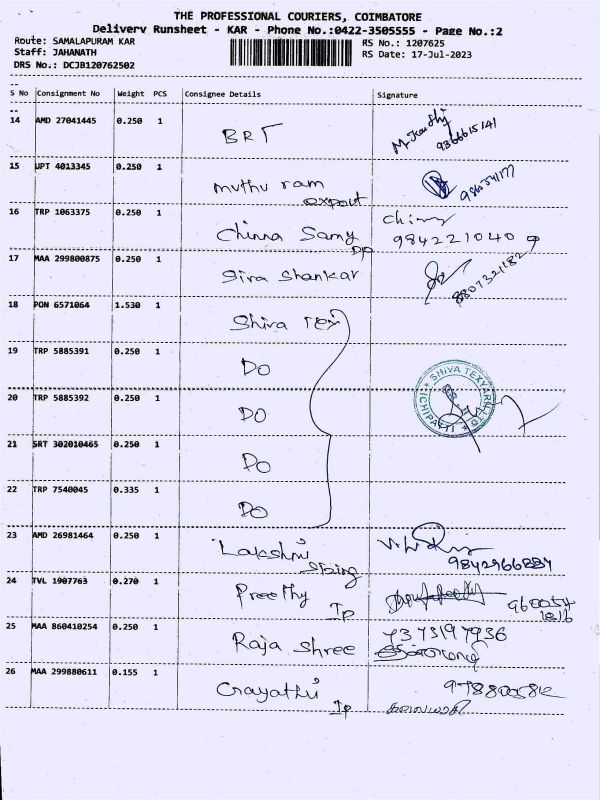 THE PROFESSIONAL COURIERS, COIMBATORE
Delivery Runsheet - KAR - Phone No.:0422-3505555 - Page No.:2
Route: SAMALAPURAM KAR
RS No.: 1207625
Staff: JAHANATH
RS Date: 17-Jul-2023
DRS No.: DCJB120762502
S No Consignment No Weight PCS Consignee Details Signature
14 AMD 27041445 0.250 1 BRT
15 UPT 4013345 0.250 1 muthu ram
export
16 TRP 1063375 0.250 1 Chinna Samy
9842210409
17 MAA 299800875 0.250 1 Siva Shankar
18 PON 6571064 1.530 1 Shiva Tex
19 TRP 5885391 0.250 1 DO
20 TRP 5885392 0.250 1 DO
SHIVA TEXYARN
ICHIPATTI
21 SRT 302010465 0.250 1 DO
22 TRP 7540045 0.335 1 DO
23 AMD 26981464 0.250 1 Lakshmi
9842966887
24 TVL 1907763 0.270 1 Preethy
Ip
25 MAA 860410254 0.250 1 Raja Shree
7373197936
26 MAA 299880611 0.155 1
Ip